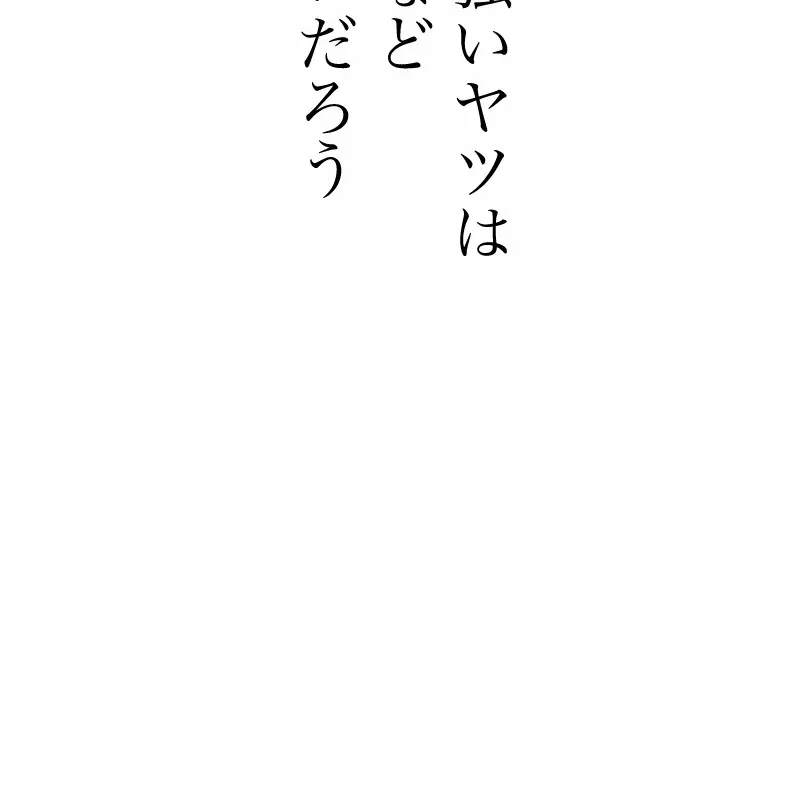 強いヤツは
など
だろう